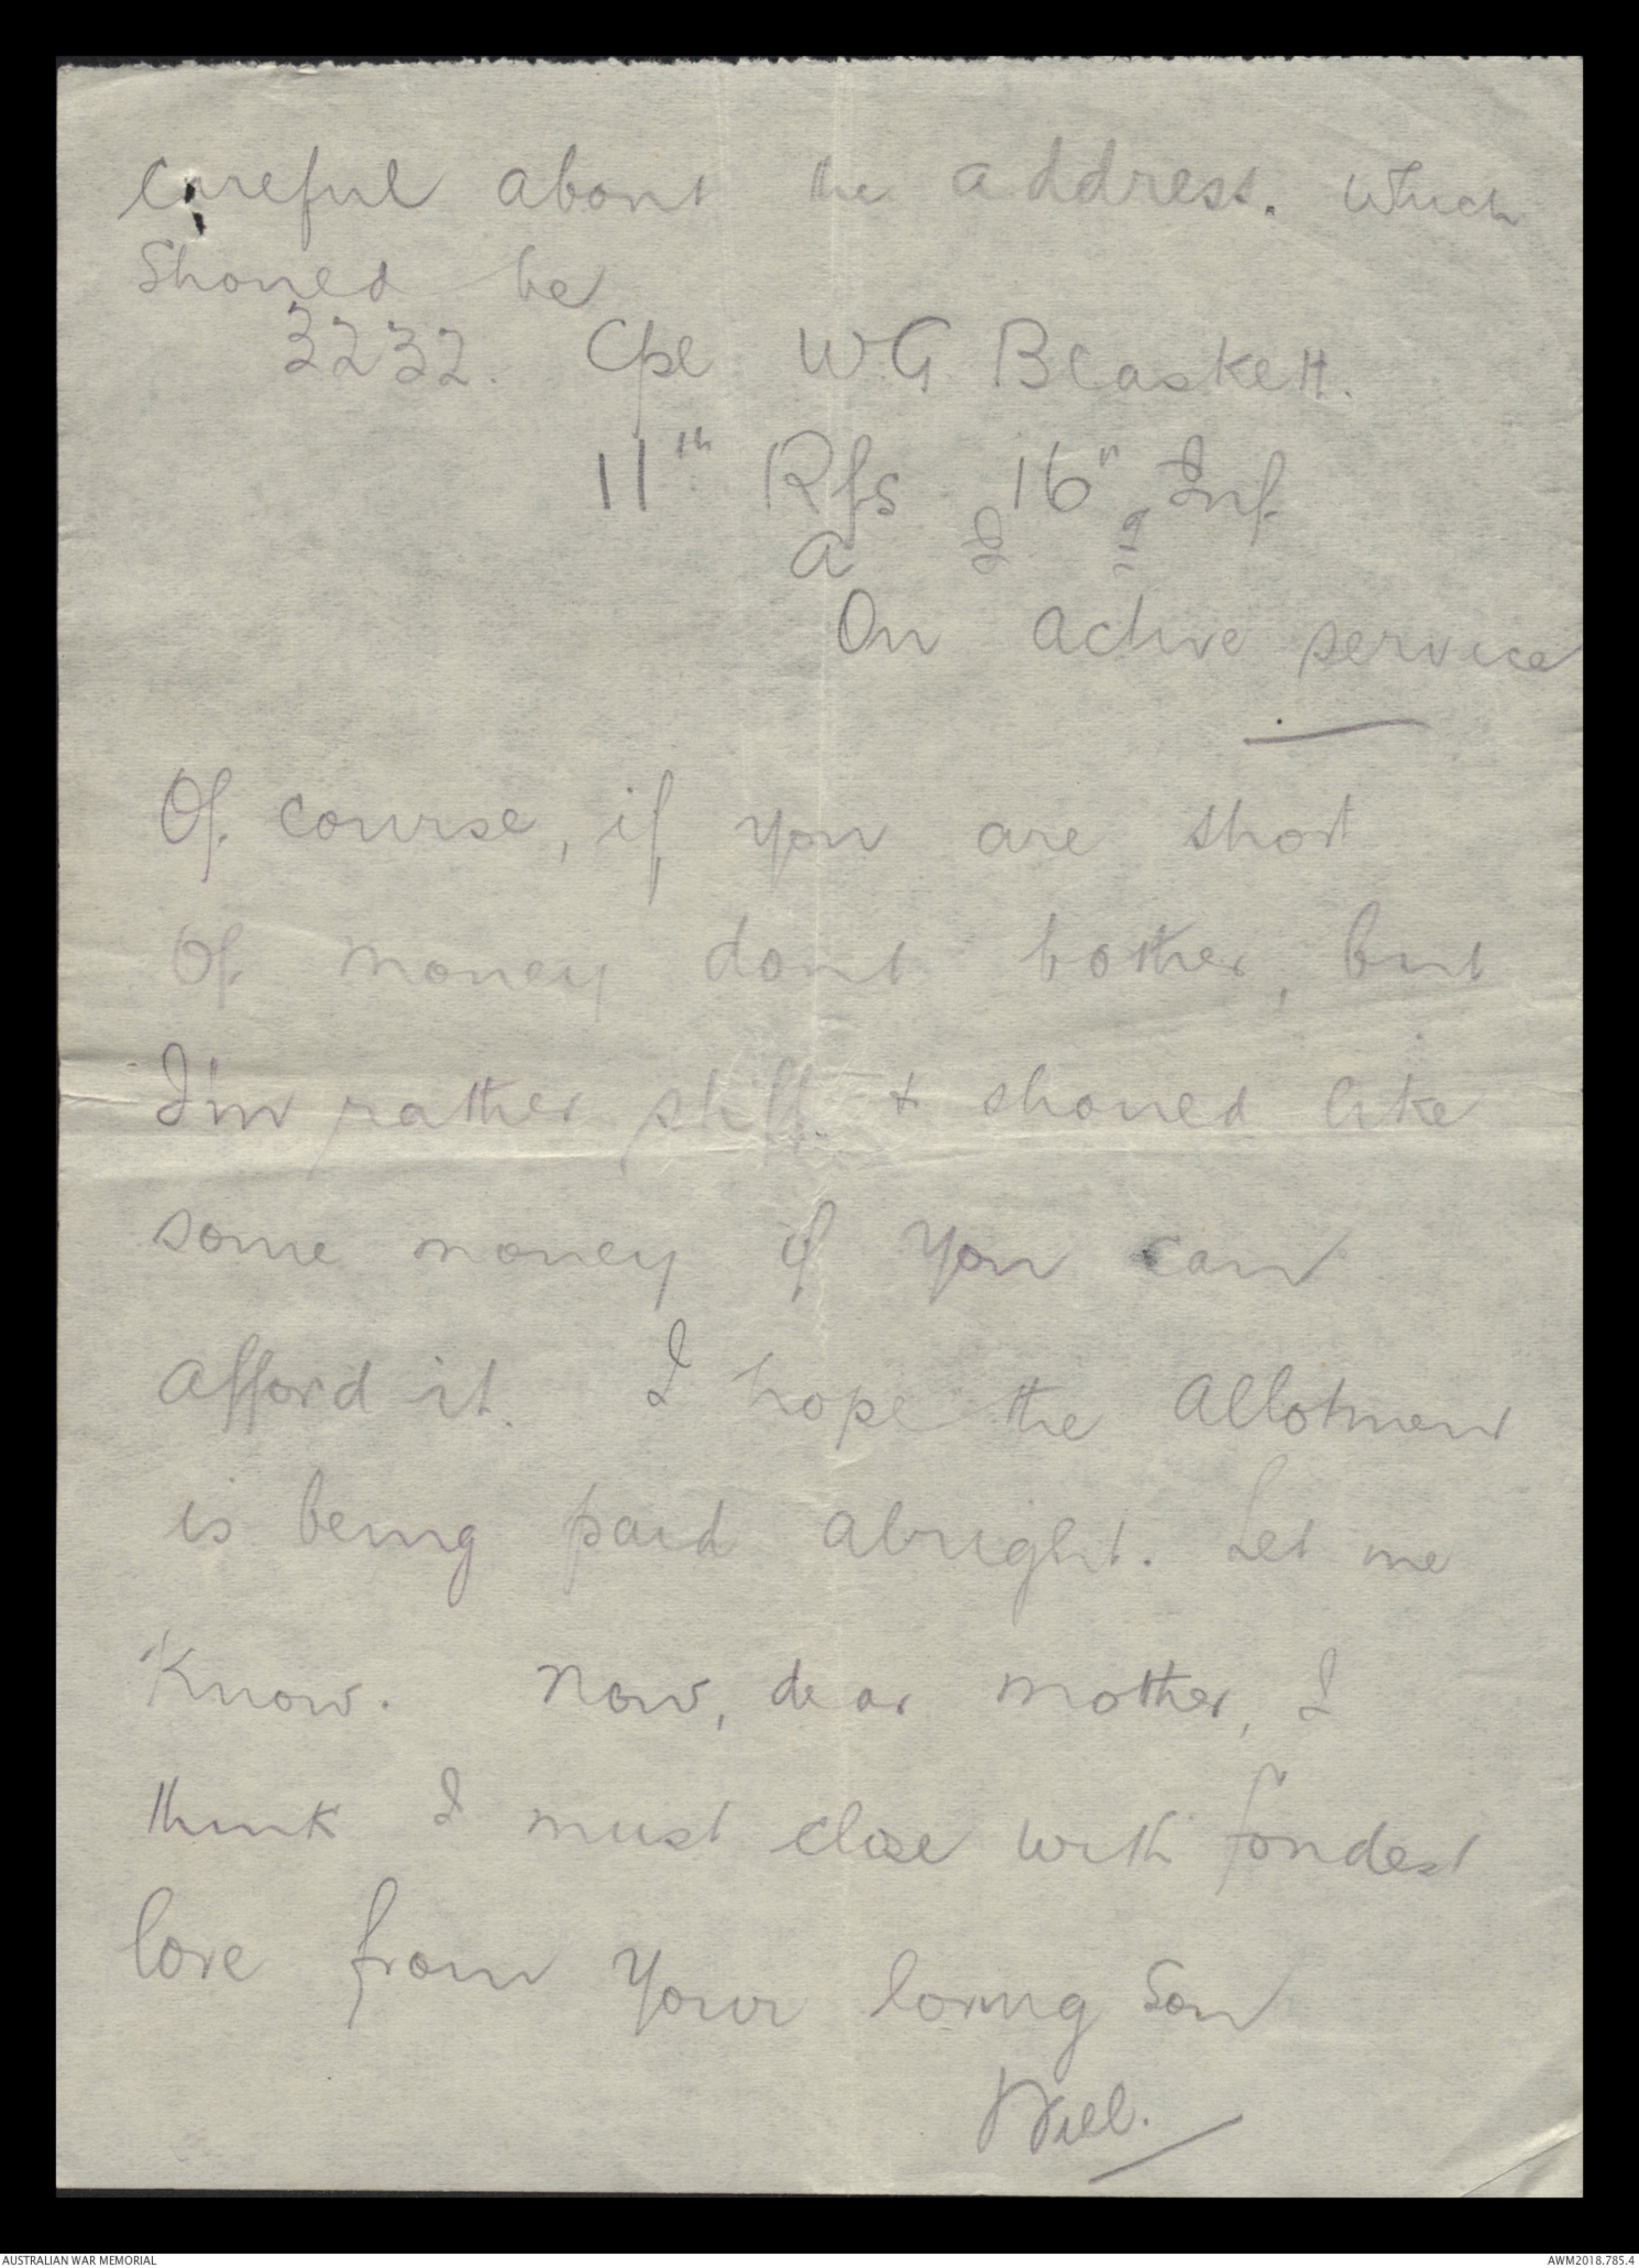 careful about the address. Which
should be
3232. Cpl W.G Blaskett.
11th Rfs 16" Inf.
A I F
On active service
Of course, if you are short
of money dont bother, but
I'm rather stiff & should like
some money if you can
afford it. I hope the allotment
is being paid alright. Let me
know. Now, dear mother, I
think I must close with fondest
love from your loving Son
Will.
AUSTRALIAN WAR MEMORIAL
AWM2018.785.4